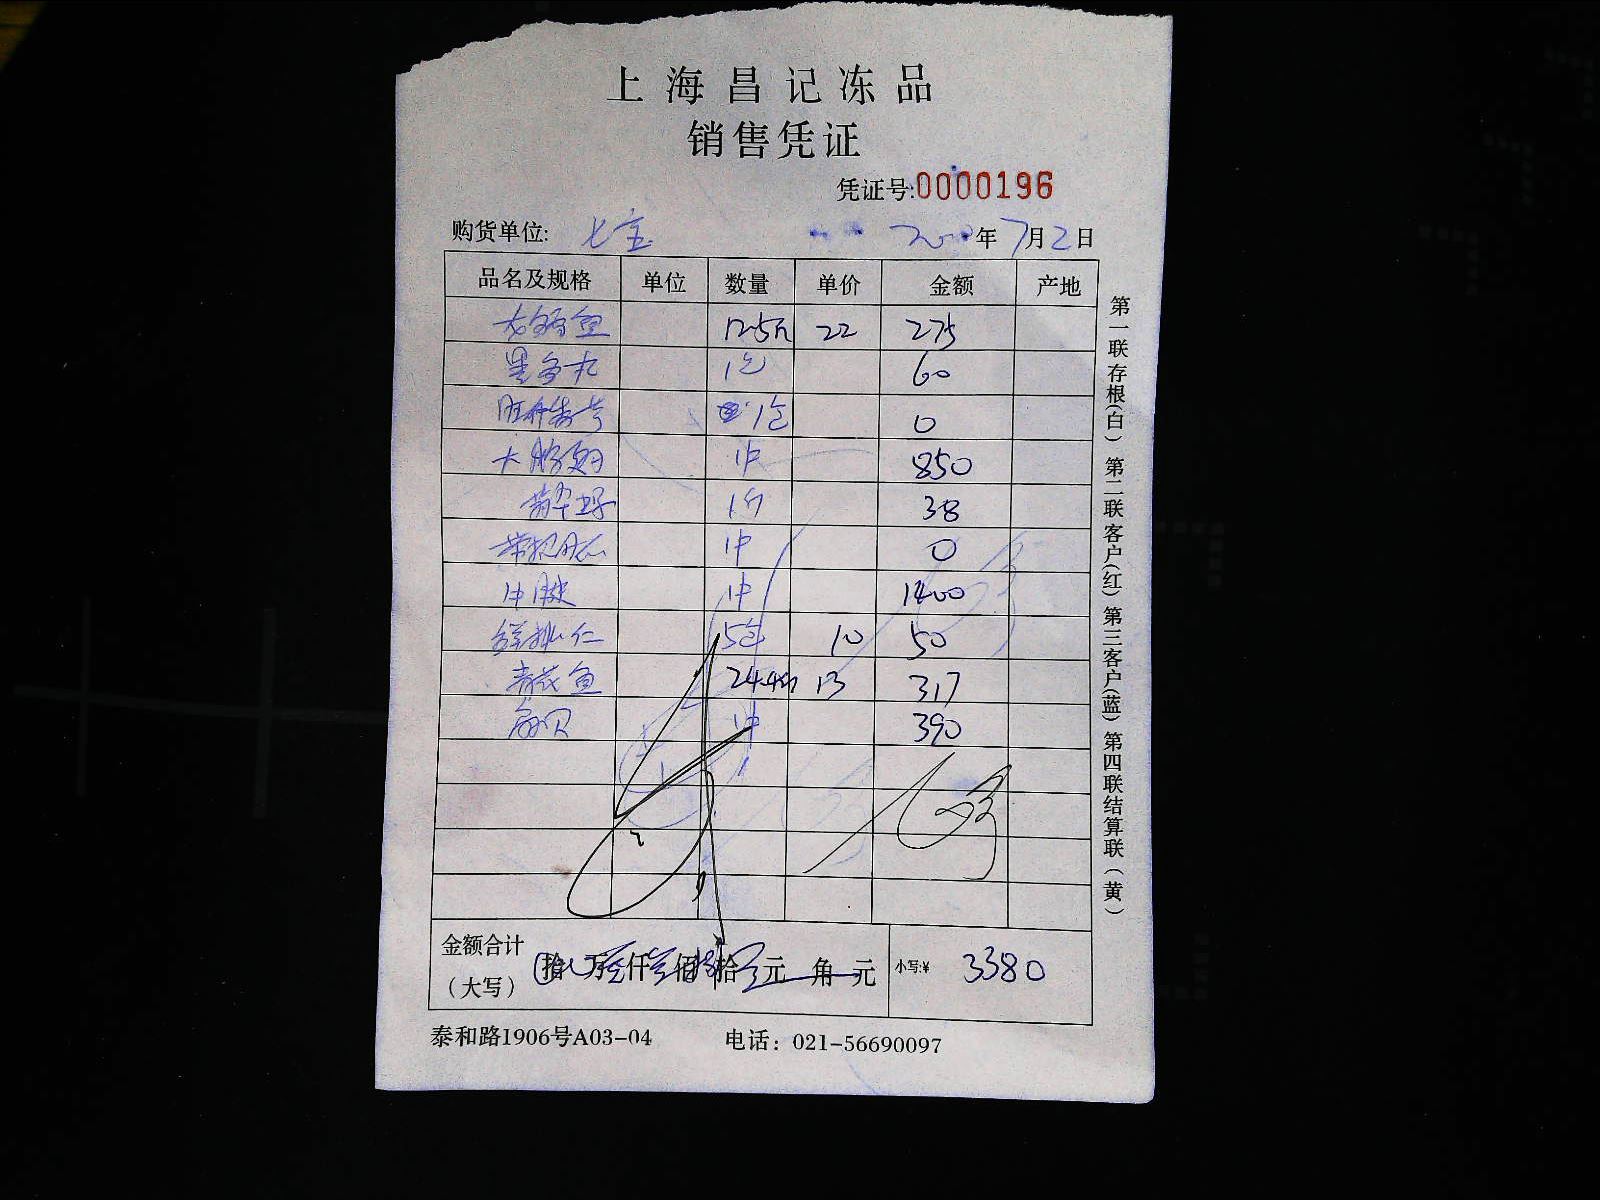 上海昌记冻品
销售凭证
凭证号:0000196
购货单位: 七宝 年7月2日
品名及规格 单位 数量 单价 金额 产地
鱼 12.5斤 22 275
墨鱼丸 1包 60
1包 0
大 1件 850
38
1件 0
1件 1400
仁 5包 10 50
鱼 24.4斤 13 317
贝 1件 390
金额合计
(大写) 拾 万 仟 佰 拾 元 角 元 小写:¥ 3380
泰和路1906号A03-04 电话: 021-56690097
第一联存根(白) 第二联客户(红) 第三客户(蓝) 第四联结算联(黄)